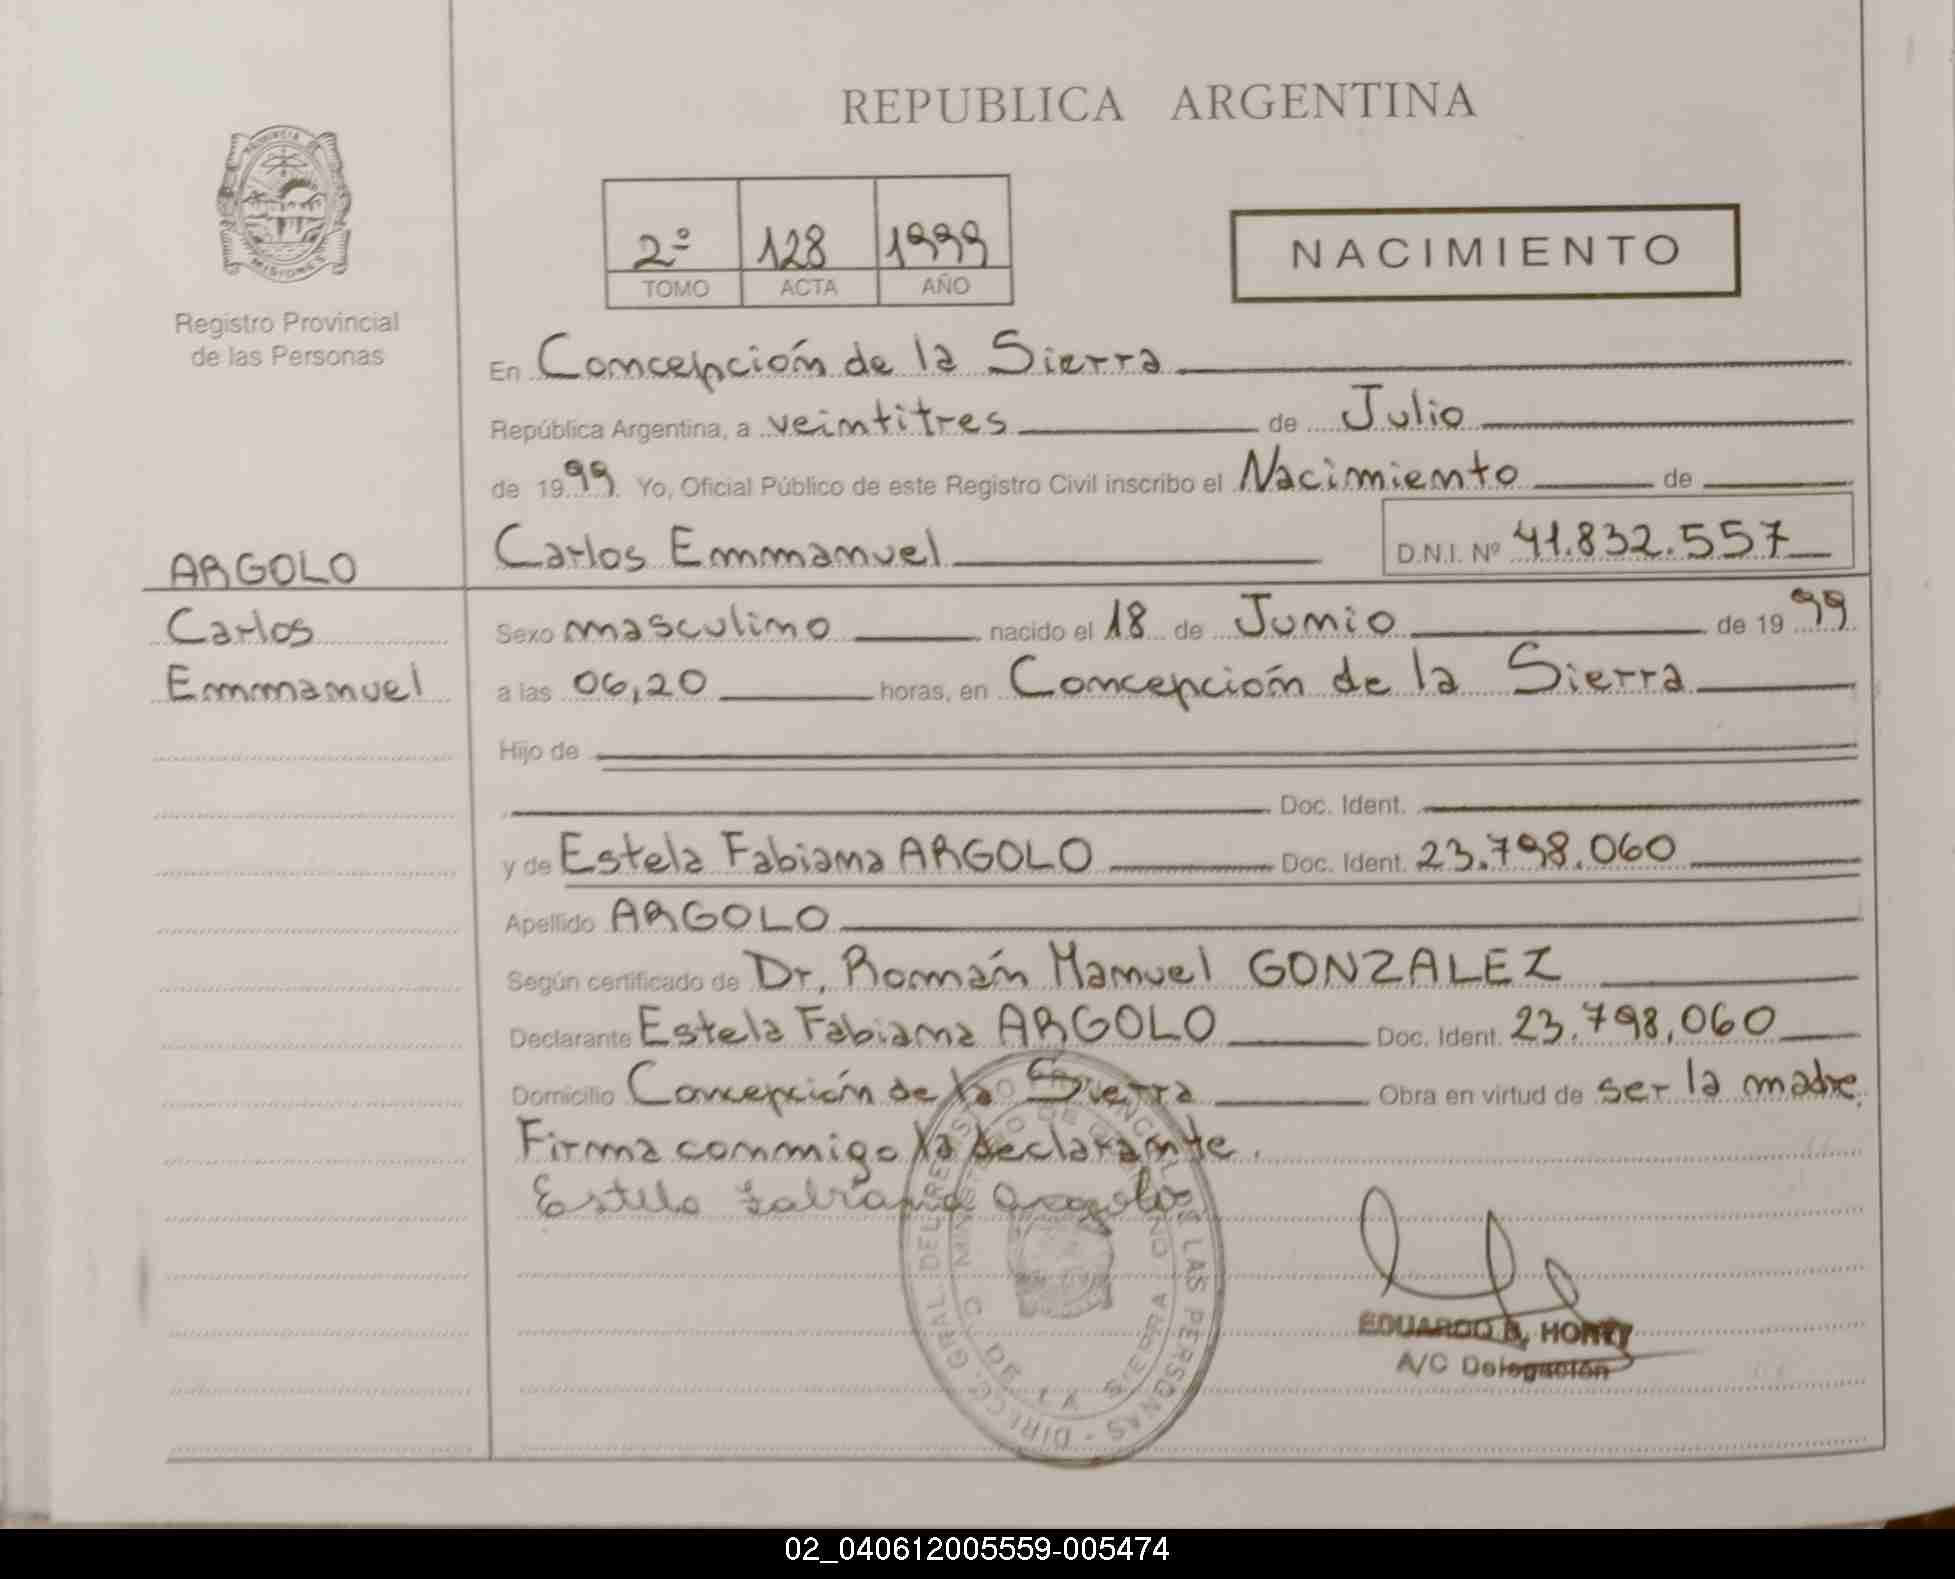 REPUBLICA ARGENTINA
PROVINCIA DE
MISIONES
Registro Provincial
de las Personas
2º 128 1999
TOMO ACTA AÑO
NACIMIENTO
En Concepción de la Sierra
República Argentina, a veintitres de Julio
de 1999 Yo, Oficial Público de este Registro Civil inscribo el Nacimiento de
Carlos Emmanuel D.N.I. Nº 41.832.557
ARGOLO
Carlos
Emmanuel
Sexo masculino nacido el 18 de Junio de 1999
a las 06,20 horas, en Concepción de la Sierra
Hijo de
Doc. Ident.
y de Estela Fabiana ARGOLO Doc. Ident. 23.798.060
Apellido ARGOLO
Según certificado de Dr. Román Manuel GONZALEZ
Declarante Estela Fabiana ARGOLO Doc. Ident. 23.798.060
Domicilio Concepción de la Sierra Obra en virtud de ser la madre.
Firma conmigo la declarante.
Estela Fabiana Argolo
DIRECC. GRAL DEL REGISTRO PROVINCIAL DE LAS PERSONAS
C. DE LA SIERRA
EDUARDO
A/C Delegación
02_040612005559-005474